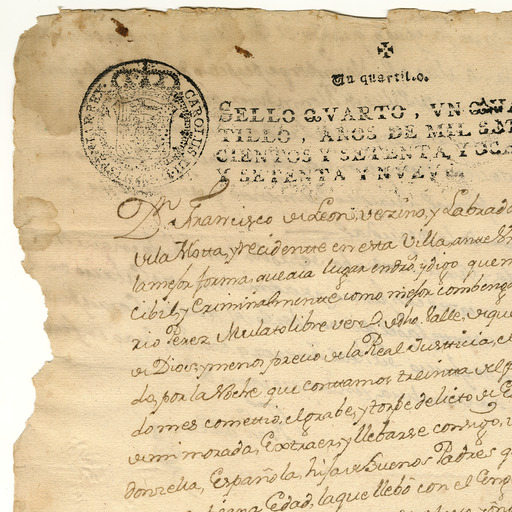 Un quartil.o.
CAROLUS III
SELLO QVARTO, VN QVA
TILLO, AÑOS DE MIL SET
CIENTOS Y SETENTA Y OCH
Y SETENTA Y NVEVE.
Dn. Francisco de Leon, vezino, y Labrado
de la Motta, y recidente en esta Villa, ante V
la mejor forma, que aia lugar en dro, y digo que
cibil, y Criminalmente como mejor combenga
rio Perez Mulato libre vez.o de dho. Valle, de que
de Dios, y menos precio de la Real Justicia, e
do, por la Noche que contamos treinta del p
do mes comettio, el grabe, y torpe delicto de E
de mi morada, Extraer, y llebarse consigo,
donzella, Española, hija de buenos Padres q
Edad, la que llebó con el